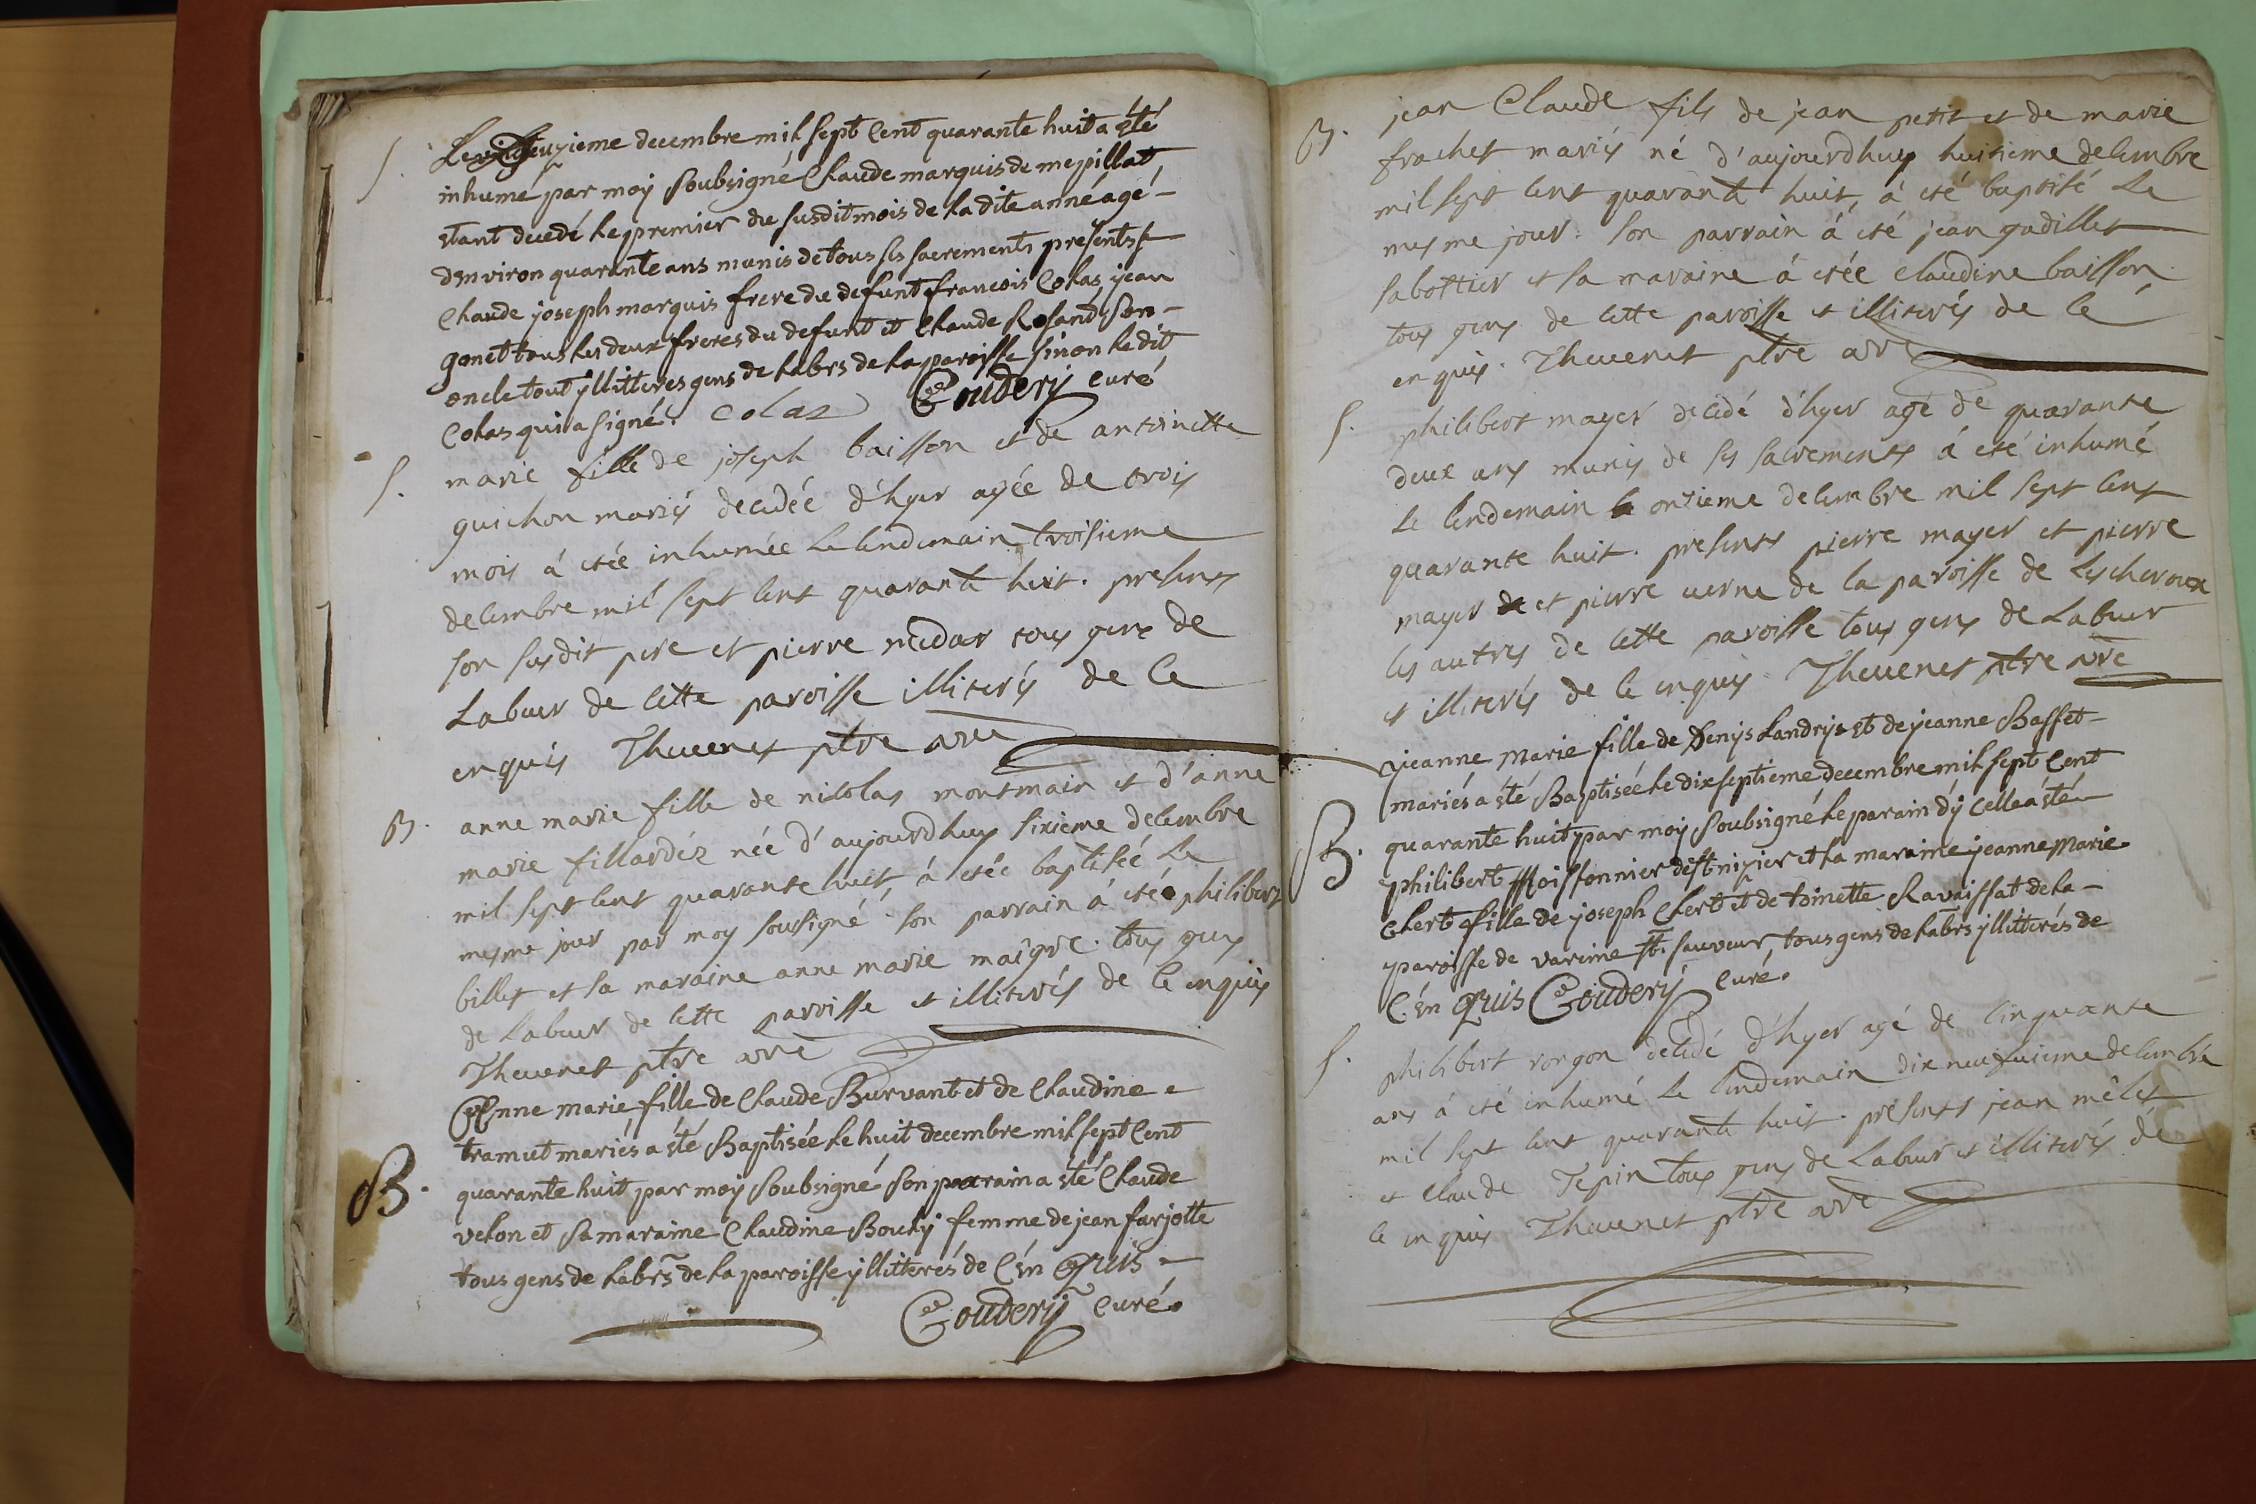 S. Le deuxieme decembre mil sept Cent quarante huit a eté
inhumé par moy soubsigné Claude marquis de mepillat
etant decedé le premier du susdit mois de la dite anné agé
d'environ quarante ans munis de tous ses sacrements presents
Claude joseph marquis frere du defunt francois Colas jean
gonet tous les deux freres du defunt et Claude Rosand son
oncle tout yllitteres gens de labrs de la paroisse sinon ledit
Colas qui a signé. Colas Couderij curé
S. marie fille de joseph baisson et de antoinette
guichon mariés decedée d'hyer agée de trois
mois á etée inhumée le lendemain troisieme
decembre mil sept cent quarante huit. presents
son susdit pere et pierre medar tous gens de
Labeur de cette paroisse illiterés de ce
enquis Thevenet ptre vre
B. anne marie fille de nicolas montmain et d'anne
marie fillardéz née d'aujourdhuy sixieme decembre
mil sept cent quarante huit, á etée baptisée le
mesme jour par moy sousigné. son parrain á eté philibert
billet et sa maraine anne marie maigre. tous gens
de Labeur de cette paroisse et illiterés de ce enquis
Thevenet ptre vre
Anne marie fille de Claude Burvant et de Claudine
tramut mariés a eté Baptisée le huit decembre mil sept Cent
B. quarante huit par moy soubsigné son parrain a eté Claude
velon et sa maraine Claudine Bouchy femme de jean farjotte
tous gens de labrs de la paroisse yllitterés de C'én Quis
Couderij curé.
B. jean Claude fils de jean petit et de marie
frachet mariés né d'aujourdhuy huitieme decembre
mil sept cent quarante huit, á eté baptisé le
mesme jour. son parrain á eté jean gadillet
sabottier et sa maraine á etée claudine baisson
tous gens de cette paroisse et illiterés de ce
enquis. Thevenet ptre vre
S. philibert mayer decedé d'hyer agé de quarante
deux ans munis de ses sacrements á eté inhumé
le lendemain onzieme decembre mil sept cent
quarante huit. presents pierre mayer et pierre
mayer et pierre verne de la paroisse de Lescheroux
les autres de cette paroisse tous gens de Labeur
et illiterés de ce enquis Thevenet ptre vre
jeanne Marie fille de Denys Landrys et de jeanne Basset
mariés a eté Baptisée le dix septieme decembre mil sept Cent
B. quarante huit par moy soubsigné le parain d'y Celle a eté
philibert Moissonnier de st nizier et la maraine jeanne Marie
Chert fille de joseph Chert et de toinette Ravaissat de la
paroisse de varenne st. sauveur, tous gens de labrs yllitterés de
C'én Quis Couderij curé.
S. philibert rongon decedé d'hyer agé de cinquante
ans á eté inhumé le lendemain dix neufvieme decembre
mil sept cent quarante huit. presents jean mêlet
et claude Tepin tous gens de Labeur et illiterés de
ce enquis Thevenet ptre vre